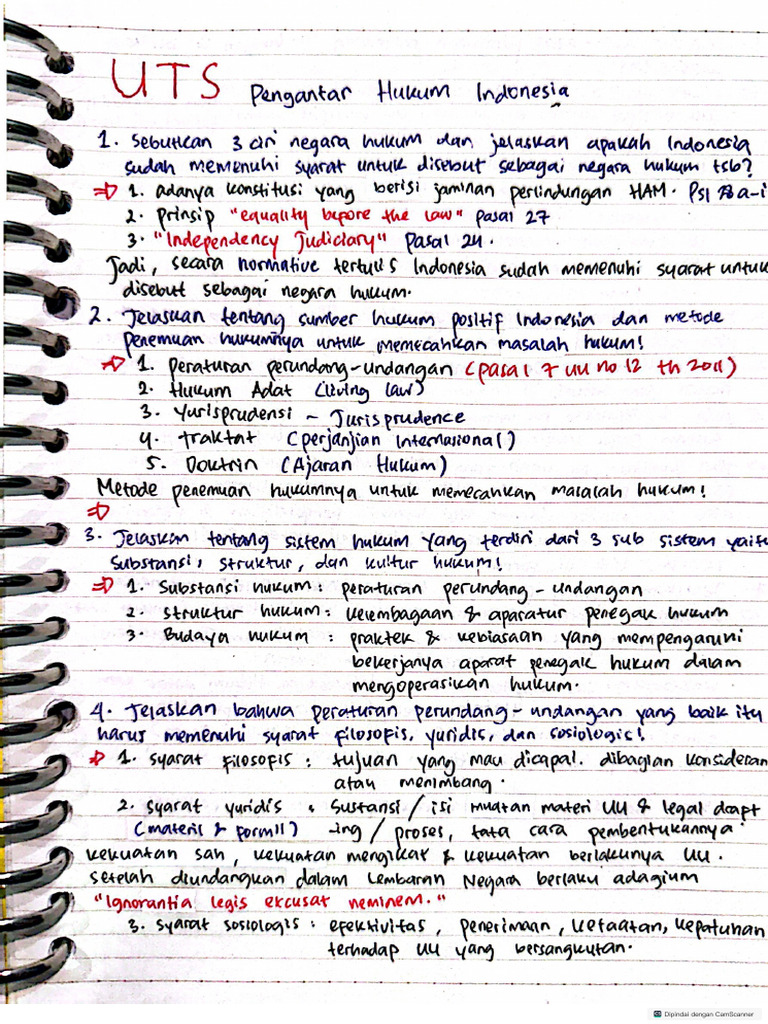 UTS Pengantar Hukum Indonesia
1. Sebutkan 3 ciri negara hukum dan jelaskan apakah Indonesia
sudah memenuhi syarat untuk disebut sebagai negara hukum tsb?
⇒ 1. adanya konstitusi yang berisi jaminan perlindungan HAM. Psl 28 a-i
2. prinsip "equality before the law" pasal 27
3. "Independency Judiciary" Pasal 24.
Jadi, secara normative tertulis Indonesia sudah memenuhi syarat untuk
disebut sebagai negara hukum.
2. Jelaskan tentang sumber hukum positif Indonesia dan metode
penemuan hukumnya untuk memecahkan masalah hukum!
⇒ 1. peraturan perundang-undangan (pasal 7 UU no 12 th 2011)
2. Hukum Adat (living law)
3. Yurisprudensi - Jurisprudence
4. Traktat (perjanjian Internasional)
5. Doktrin (Ajaran Hukum)
Metode penemuan hukumnya untuk memecahkan masalah hukum!
⇒
3. Jelaskan tentang sistem hukum yang terdiri dari 3 sub sistem yaitu
Substansi, struktur, dan kultur hukum!
⇒ 1. Substansi hukum : peraturan perundang-undangan
2. Struktur hukum : kelembagaan & aparatur penegak hukum
3. Budaya hukum : praktek & kebiasaan yang mempengaruhi
bekerjanya aparat penegak hukum dalam
mengoperasikan hukum.
4. Jelaskan bahwa peraturan perundang-undangan yang baik itu
harus memenuhi syarat filosofis, yuridis, dan sosiologis!
⇒ 1. syarat filosofis : tujuan yang mau dicapai. dibagian konsideran
atau menimbang.
2. syarat yuridis : Sustansi / isi muatan materi UU & legal draft
(materil & formil) -ing / proses, tata cara pembentukannya.
kekuatan sah, kekuatan mengikat & kekuatan berlakunya UU.
setelah diundangkan dalam Lembaran Negara berlaku adagium
"Ignorantia legis excusat neminem."
3. syarat sosiologis : efektivitas, penerimaan, ketaatan, kepatuhan
terhadap UU yang bersangkutan.
Dipindai dengan CamScanner